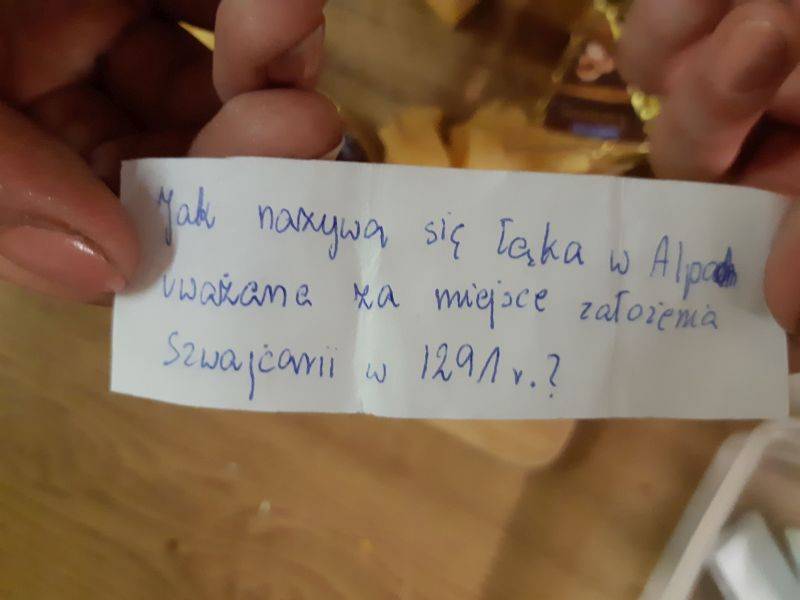 Jak nazywa się łąka w Alpach
uważana za miejsce założenia
Szwajcarii w 1291 r.?